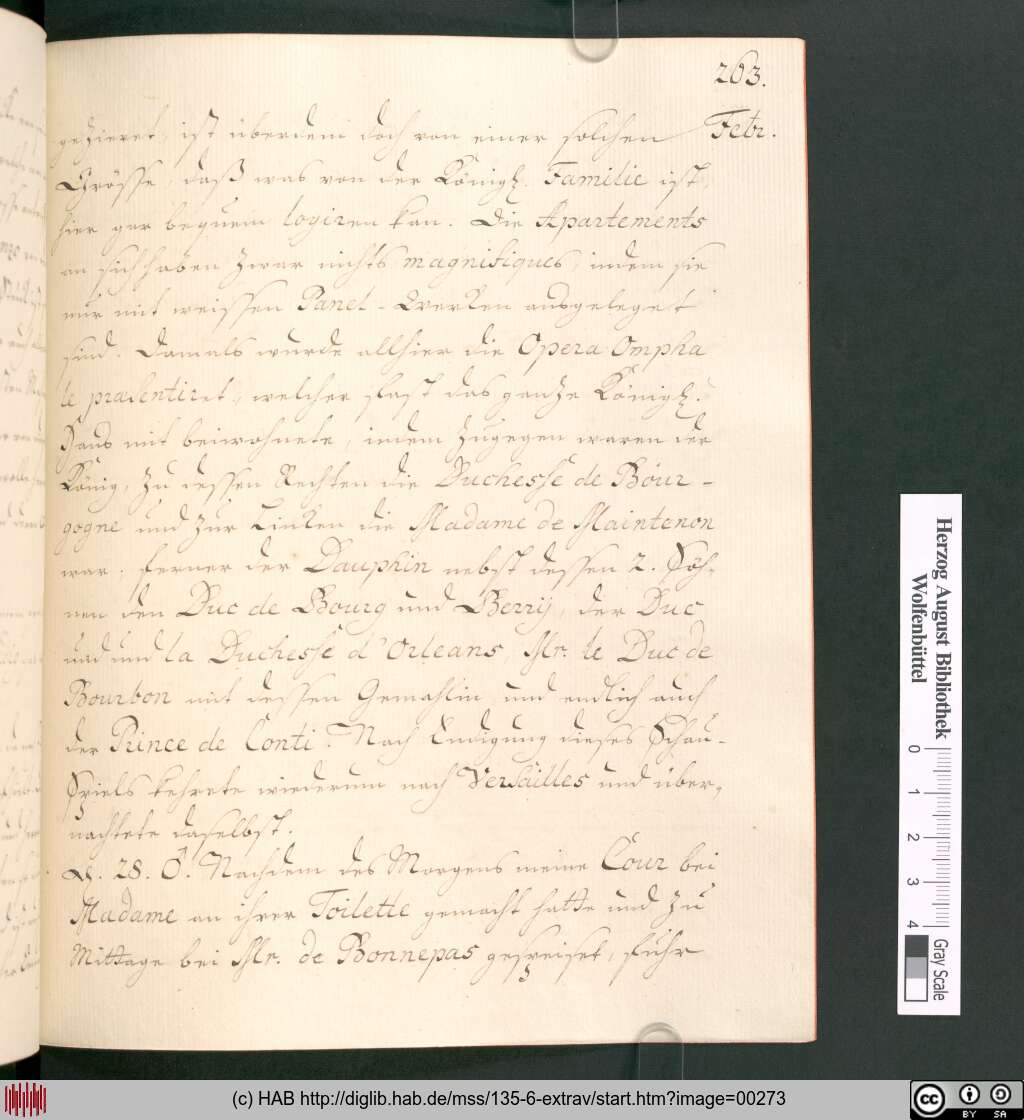 263.
Febr.
gezieret, ist überdem doch von einer solchen
Grösse, daß was von der Königl. Familie ist,
hier gar bequem logiren kan. Die Apartements
an sich haben zwar nichts magnifiques, indem sie
nur mit weissen Panel-Werken ausgeleget
sind. Damals wurde allhier die Opera Ompha
le præsentiret, welcher fast das gantze Königl.
Haus mit beiwohnete, indem zugegen waren der
König, zu dessen Rechten die Duchesse de Bour-
gogne und zur Linken die Madame de Maintenon
war. ferner der Dauphin nebst dessen 2. Söh-
nen den Duc de Bourg und Berry, der Duc
und und la Duchesse d'Orleans, Mr. le Duc de
Bourbon mit dessen Gemahlin, und endlich auch
der Prince de Conti. Nach Endigung dieses Schau-
Spiels kehrete wiederum nach Versailles und über-
nachtete daselbst.
D. 28. Nachdem des Morgens meine Cour bei
Madame an ihrer Toilette gemacht hatte und zu
Mittage bei Mr. de Bonnepas gespeiset, fuhr
Herzog August Bibliothek
Wolfenbüttel
0 1 2 3 4
Gray Scale
(c) HAB http://diglib.hab.de/mss/135-6-extrav/start.htm?image=00273
cc BY SA